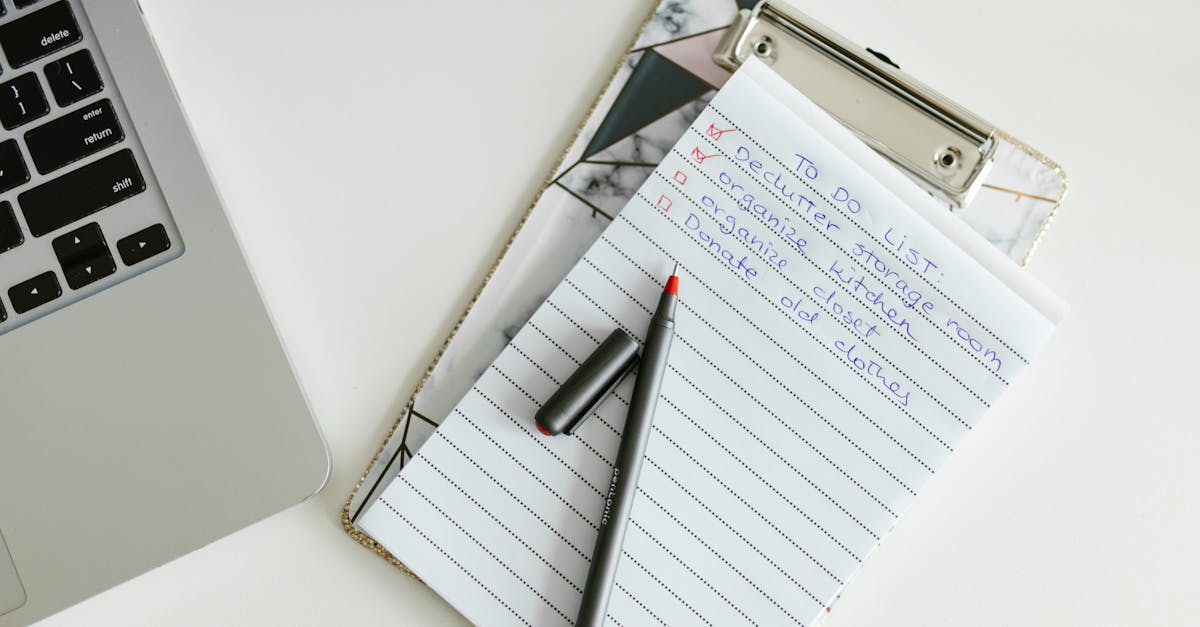 delete
enter
return
shift
TO DO LIST:
Declutter storage room
organize kitchen
organize closet
Donate old clothes
pentonic